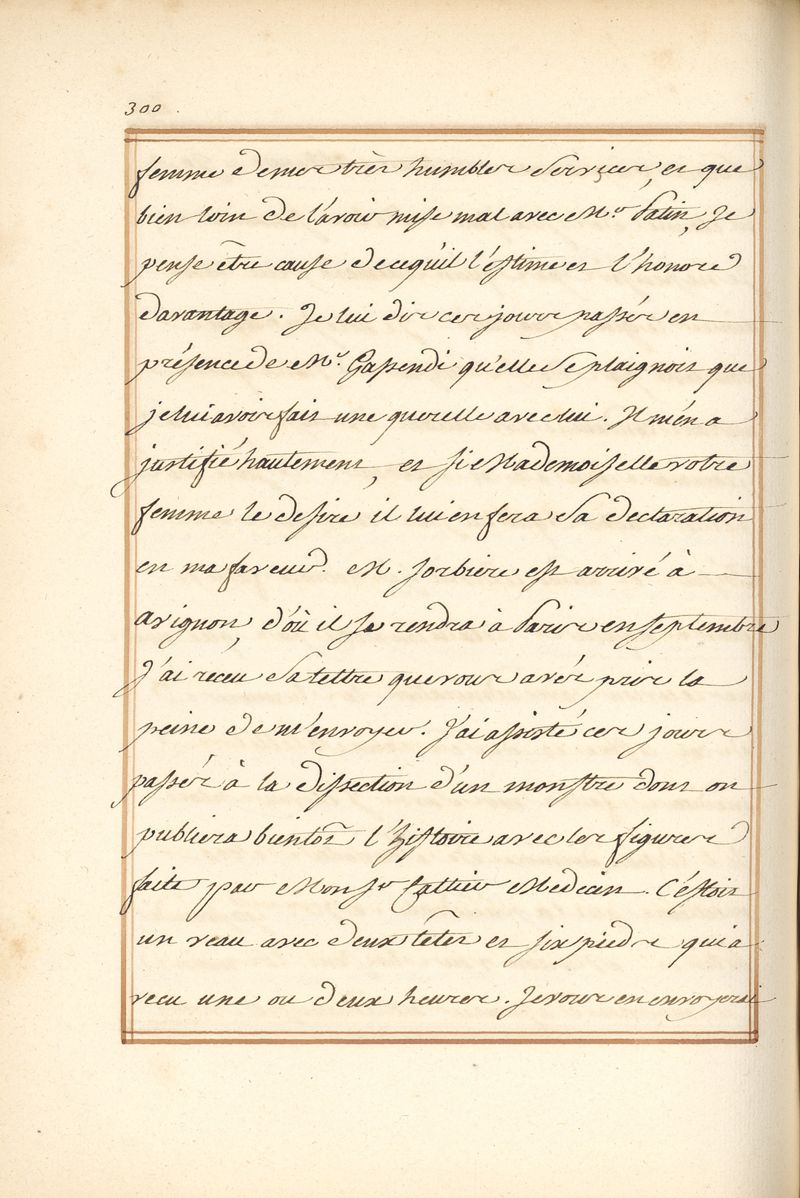 300
femme de mes très humbles Services, et que
bien loin de l'avoir mise mal avec Mr. Patin, Je
pense être cause de ce qu'il l'estime et l'honore
davantage. Je lui dis ces jours passés en
présence de Mr. Gassendi qu'elle se plaignoit que
je lui avois fait une querelle avec lui. Il m'en a
justifié hautement, et si Mademoiselle votre
femme le desire il lui en fera Sa declaration
en ma faveur. M. Sorbiere est arrivé à
avignon, d'où il se rendra à Paris en septembre
J'ai receu Sa lettre que vous avés pris la
peine de m'envoyer. J'ai assisté ces jours
passés à la dissection d'un monstre dont on
publiera bientot l'histoire avec les figures
faite par Monsr Cattier Medecin. C'estoit
un veau avec deux têtes et six pieds qui a
vecu une ou deux heures. Je vous en envoyerai